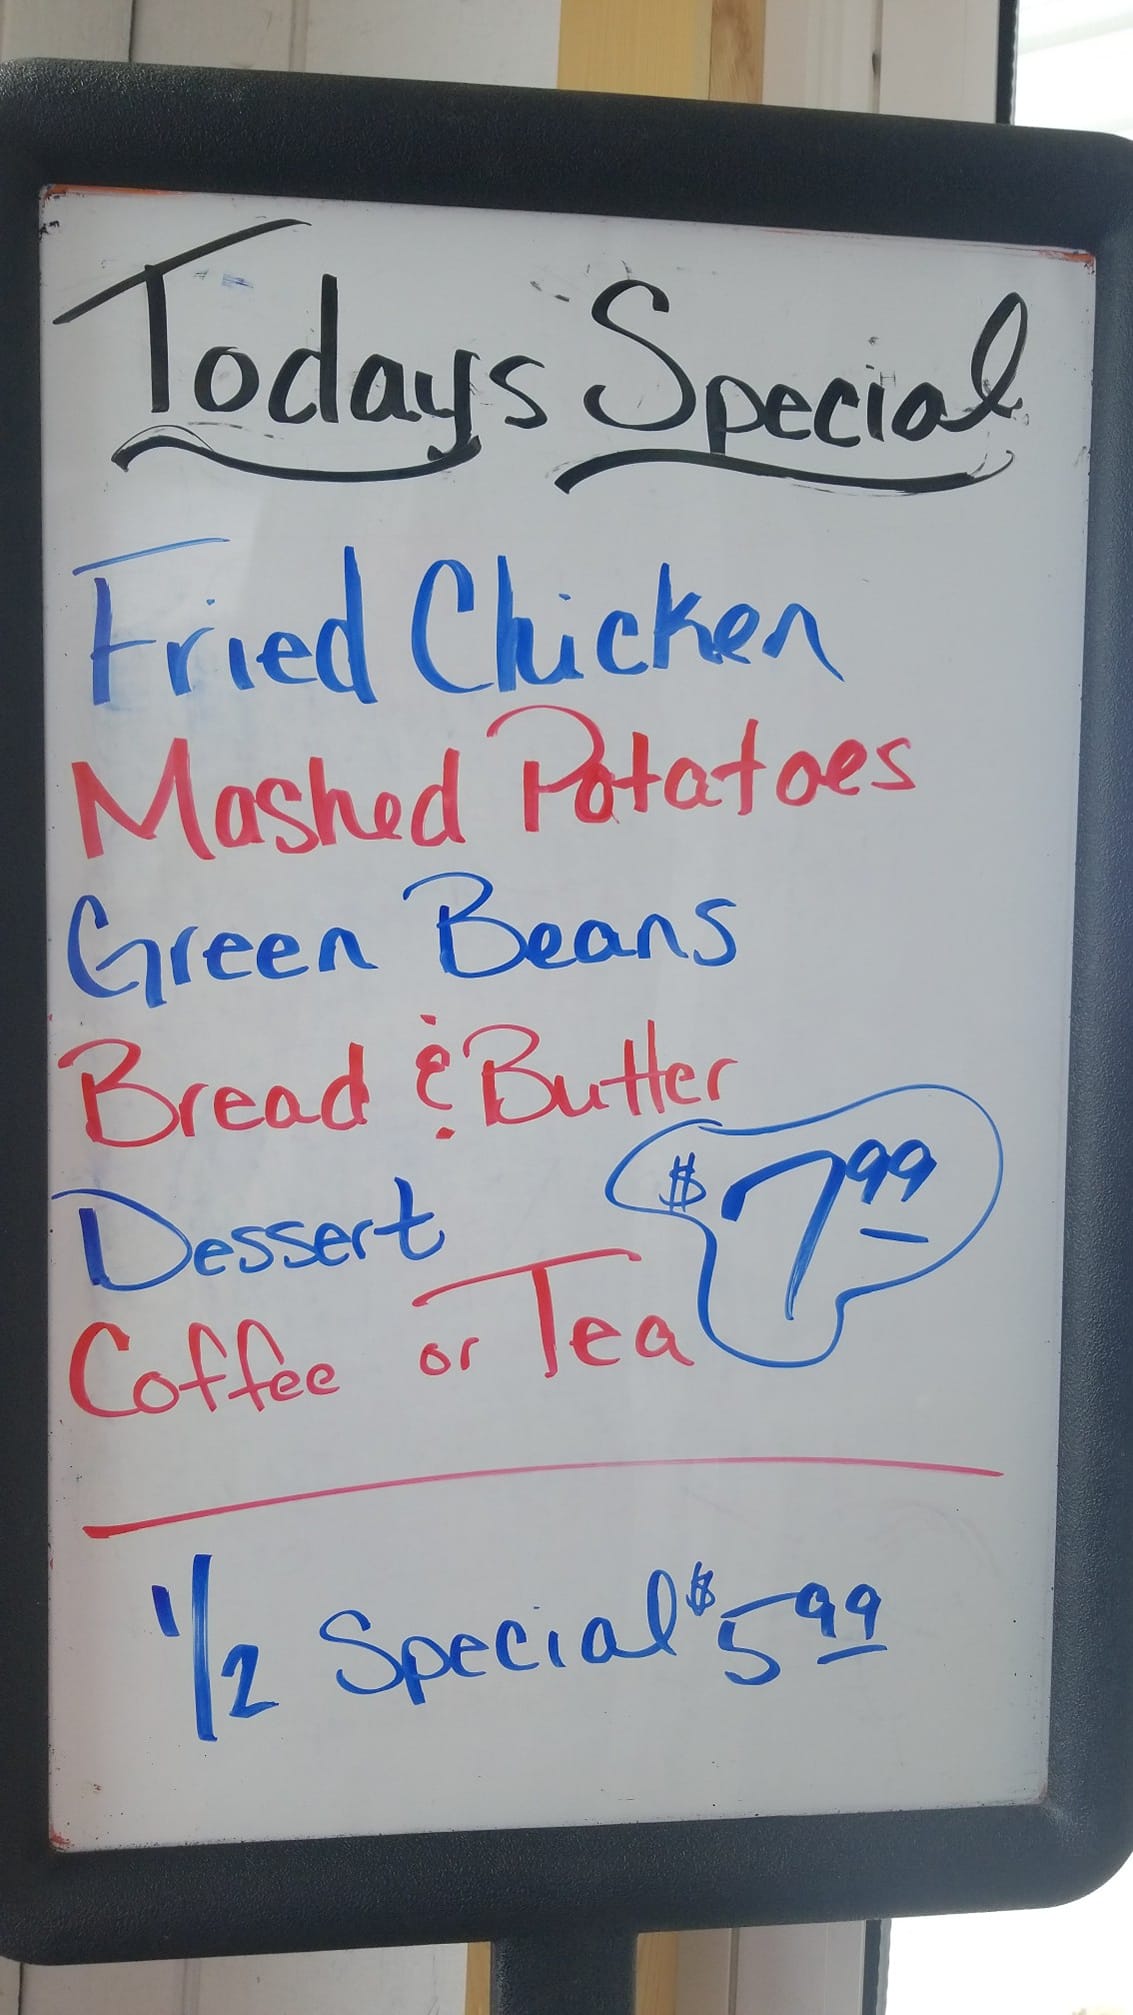 Todays Special
Fried Chicken
Mashed Potatoes
Green Beans
Bread & Butter
Dessert
$7.99
Coffee or Tea
1/2 Special $5.99